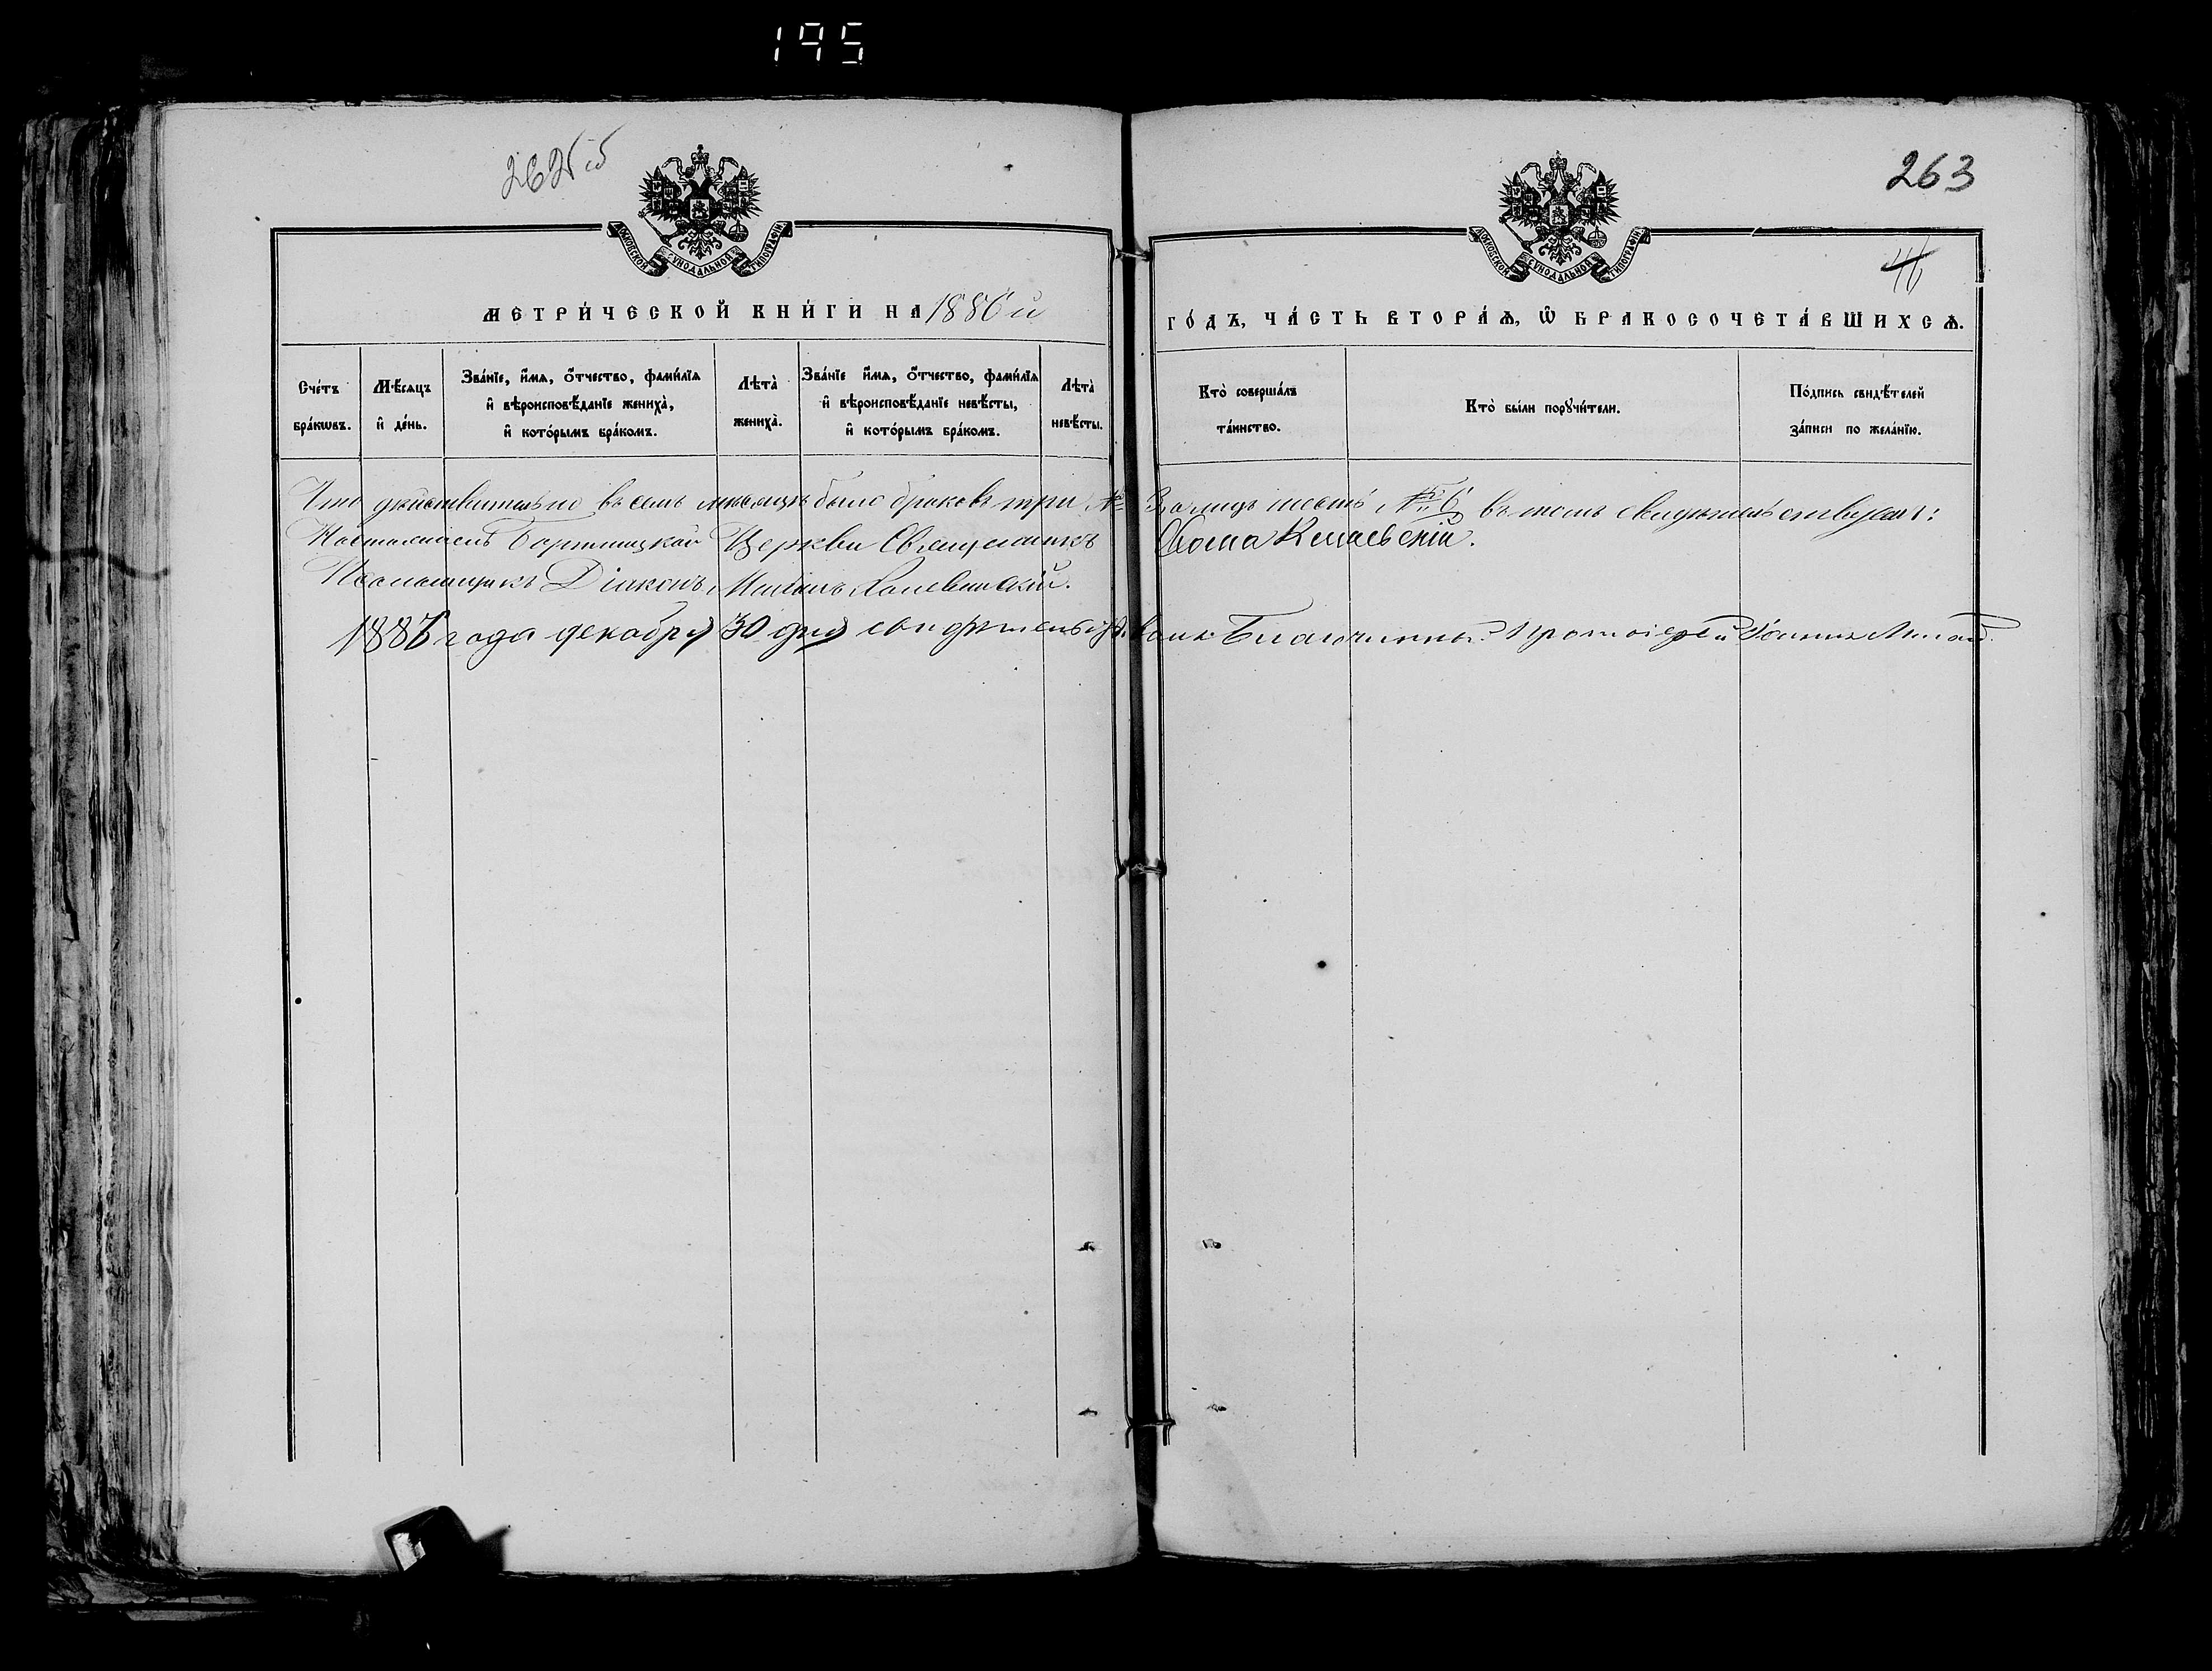 195
262об
263
46
МОСКОВСКОЙ СѴНОДАЛЬНОЙ ТИПОГРАФІИ
МОСКОВСКОЙ СѴНОДАЛЬНОЙ ТИПОГРАФІИ
МЕТРИ́ЧЕСКОЙ КНИ́ГИ НА 1886й ГО́ДЪ, ЧА́СТЬ ВТОРА́Ѧ, Ѽ БРАКОСОЧЕТА́ВШИХСѦ.
Сче́тъ
бра́кѡвъ.
Мѣ́сяцъ
и҆ де́нь.
Зва́нїе, и҆́мѧ, ѻ҆́тчество, фами́лїѧ
и҆ вѣроисповѣ́данїе жениха̀,
и҆ кото́рымъ бра́комъ.
Лѣта̀
жениха̀.
Зва́нїе и҆́мѧ, ѻ҆́тчество, фами́лїѧ
и҆ вѣроисповѣ́данїе невѣ́сты,
и҆ кото́рымъ бра́комъ.
Лѣта̀
невѣ́сты.
Кто̀ соверша́лъ
та́инство.
Кто̀ бы́ли порꙋчи́тели.
По́дпись свидѣ́телей
за́писи по жела́нїю.
Что дѣйствительно въ семъ мѣсяцѣ было браковъ три № 3 а лицъ шесть № 6 въ томъ свидѣтельствуемъ:
Настоятель Церкви Священникъ Ѳома
Діаконъ
1886 года декабря 30 дня свидѣтельствовалъ Благочинный Протоіерей Іоаннъ